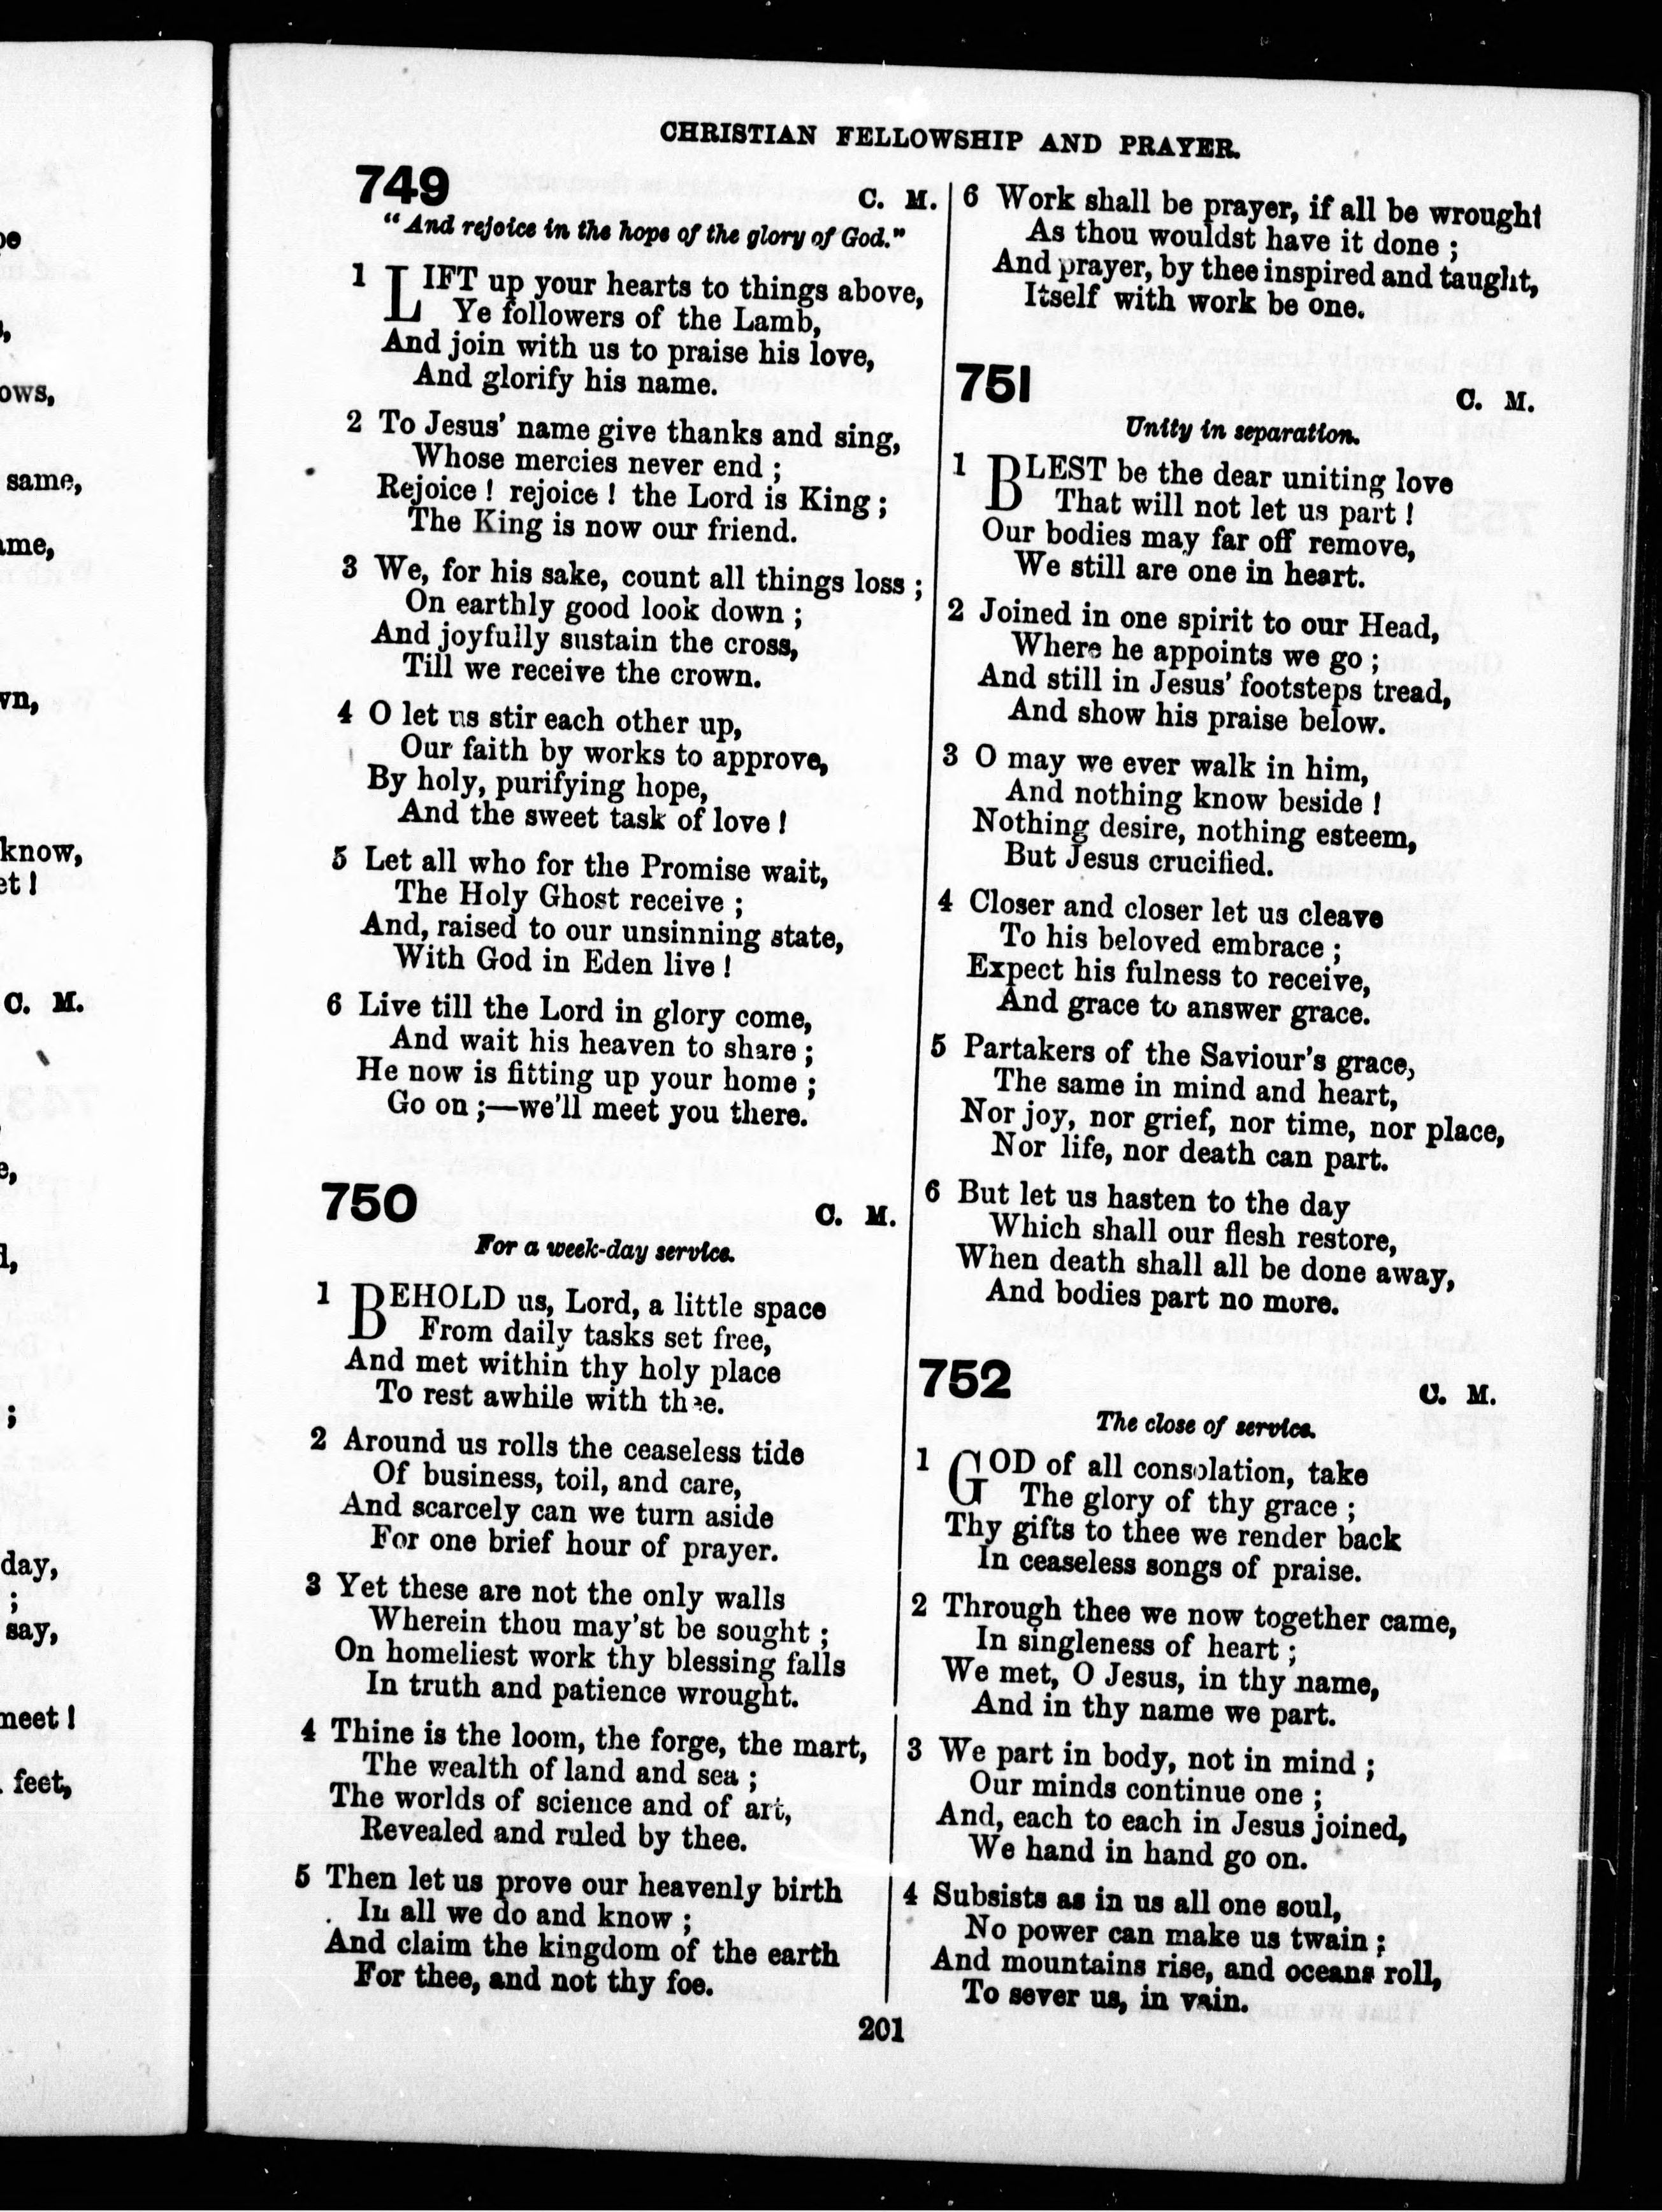 pe
s,
ows,
same,
ame,
wn,
know,
et!
C. M.
e,
d,
;
day,
;
say,
meet!
feet,
CHRISTIAN FELLOWSHIP AND PRAYER.
749
C. M.
"And rejoice in the hope of the glory of God."
1 LIFT up your hearts to things above,
Ye followers of the Lamb,
And join with us to praise his love,
And glorify his name.
2 To Jesus' name give thanks and sing,
Whose mercies never end ;
Rejoice ! rejoice ! the Lord is King ;
The King is now our friend.
3 We, for his sake, count all things loss ;
On earthly good look down ;
And joyfully sustain the cross,
Till we receive the crown.
4 O let us stir each other up,
Our faith by works to approve,
By holy, purifying hope,
And the sweet task of love !
5 Let all who for the Promise wait,
The Holy Ghost receive ;
And, raised to our unsinning state,
With God in Eden live !
6 Live till the Lord in glory come,
And wait his heaven to share ;
He now is fitting up your home ;
Go on ;—we'll meet you there.
750
C. M.
For a week-day service.
1 BEHOLD us, Lord, a little space
From daily tasks set free,
And met within thy holy place
To rest awhile with thee.
2 Around us rolls the ceaseless tide
Of business, toil, and care,
And scarcely can we turn aside
For one brief hour of prayer.
3 Yet these are not the only walls
Wherein thou may'st be sought ;
On homeliest work thy blessing falls
In truth and patience wrought.
4 Thine is the loom, the forge, the mart,
The wealth of land and sea ;
The worlds of science and of art,
Revealed and ruled by thee.
5 Then let us prove our heavenly birth
In all we do and know ;
And claim the kingdom of the earth
For thee, and not thy foe.
6 Work shall be prayer, if all be wrought
As thou wouldst have it done ;
And prayer, by thee inspired and taught,
Itself with work be one.
751
C. M.
Unity in separation.
1 BLEST be the dear uniting love
That will not let us part !
Our bodies may far off remove,
We still are one in heart.
2 Joined in one spirit to our Head,
Where he appoints we go ;
And still in Jesus' footsteps tread,
And show his praise below.
3 O may we ever walk in him,
And nothing know beside !
Nothing desire, nothing esteem,
But Jesus crucified.
4 Closer and closer let us cleave
To his beloved embrace ;
Expect his fulness to receive,
And grace to answer grace.
5 Partakers of the Saviour's grace,
The same in mind and heart,
Nor joy, nor grief, nor time, nor place,
Nor life, nor death can part.
6 But let us hasten to the day
Which shall our flesh restore,
When death shall all be done away,
And bodies part no more.
752
C. M.
The close of service.
1 GOD of all consolation, take
The glory of thy grace ;
Thy gifts to thee we render back
In ceaseless songs of praise.
2 Through thee we now together came,
In singleness of heart ;
We met, O Jesus, in thy name,
And in thy name we part.
3 We part in body, not in mind ;
Our minds continue one ;
And, each to each in Jesus joined,
We hand in hand go on.
4 Subsists as in us all one soul,
No power can make us twain ;
And mountains rise, and oceans roll,
To sever us, in vain.
201